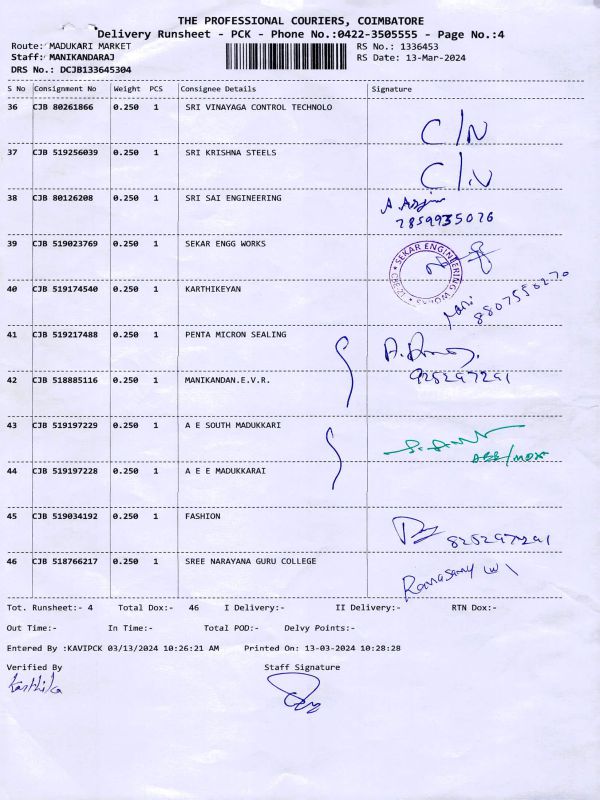 THE PROFESSIONAL COURIERS, COIMBATORE
Delivery Runsheet - PCK - Phone No.:0422-3505555 - Page No.:4
Route: MADUKARI MARKET
Staff: MANIKANDARAJ
DRS No.: DCJB133645304
RS No.: 1336453
RS Date: 13-Mar-2024
S No Consignment No Weight PCS Consignee Details Signature
36 CJB 80261866 0.250 1 SRI VINAYAGA CONTROL TECHNOLO C/N
37 CJB 519256039 0.250 1 SRI KRISHNA STEELS C/N
38 CJB 80126208 0.250 1 SRI SAI ENGINEERING
7859935076
39 CJB 519023769 0.250 1 SEKAR ENGG WORKS SEKAR ENGINEERING WORKS
40 CJB 519174540 0.250 1 KARTHIKEYAN
41 CJB 519217488 0.250 1 PENTA MICRON SEALING
42 CJB 518885116 0.250 1 MANIKANDAN.E.V.R. 925297291
43 CJB 519197229 0.250 1 A E SOUTH MADUKKARI
44 CJB 519197228 0.250 1 A E E MADUKKARAI
45 CJB 519034192 0.250 1 FASHION 825297291
46 CJB 518766217 0.250 1 SREE NARAYANA GURU COLLEGE Ramasamy
Tot. Runsheet:- 4 Total Dox:- 46 I Delivery:- II Delivery:- RTN Dox:-
Out Time:- In Time:- Total POD:- Delvy Points:-
Entered By :KAVIPCK 03/13/2024 10:26:21 AM Printed On: 13-03-2024 10:28:28
Verified By Staff Signature
Karthika